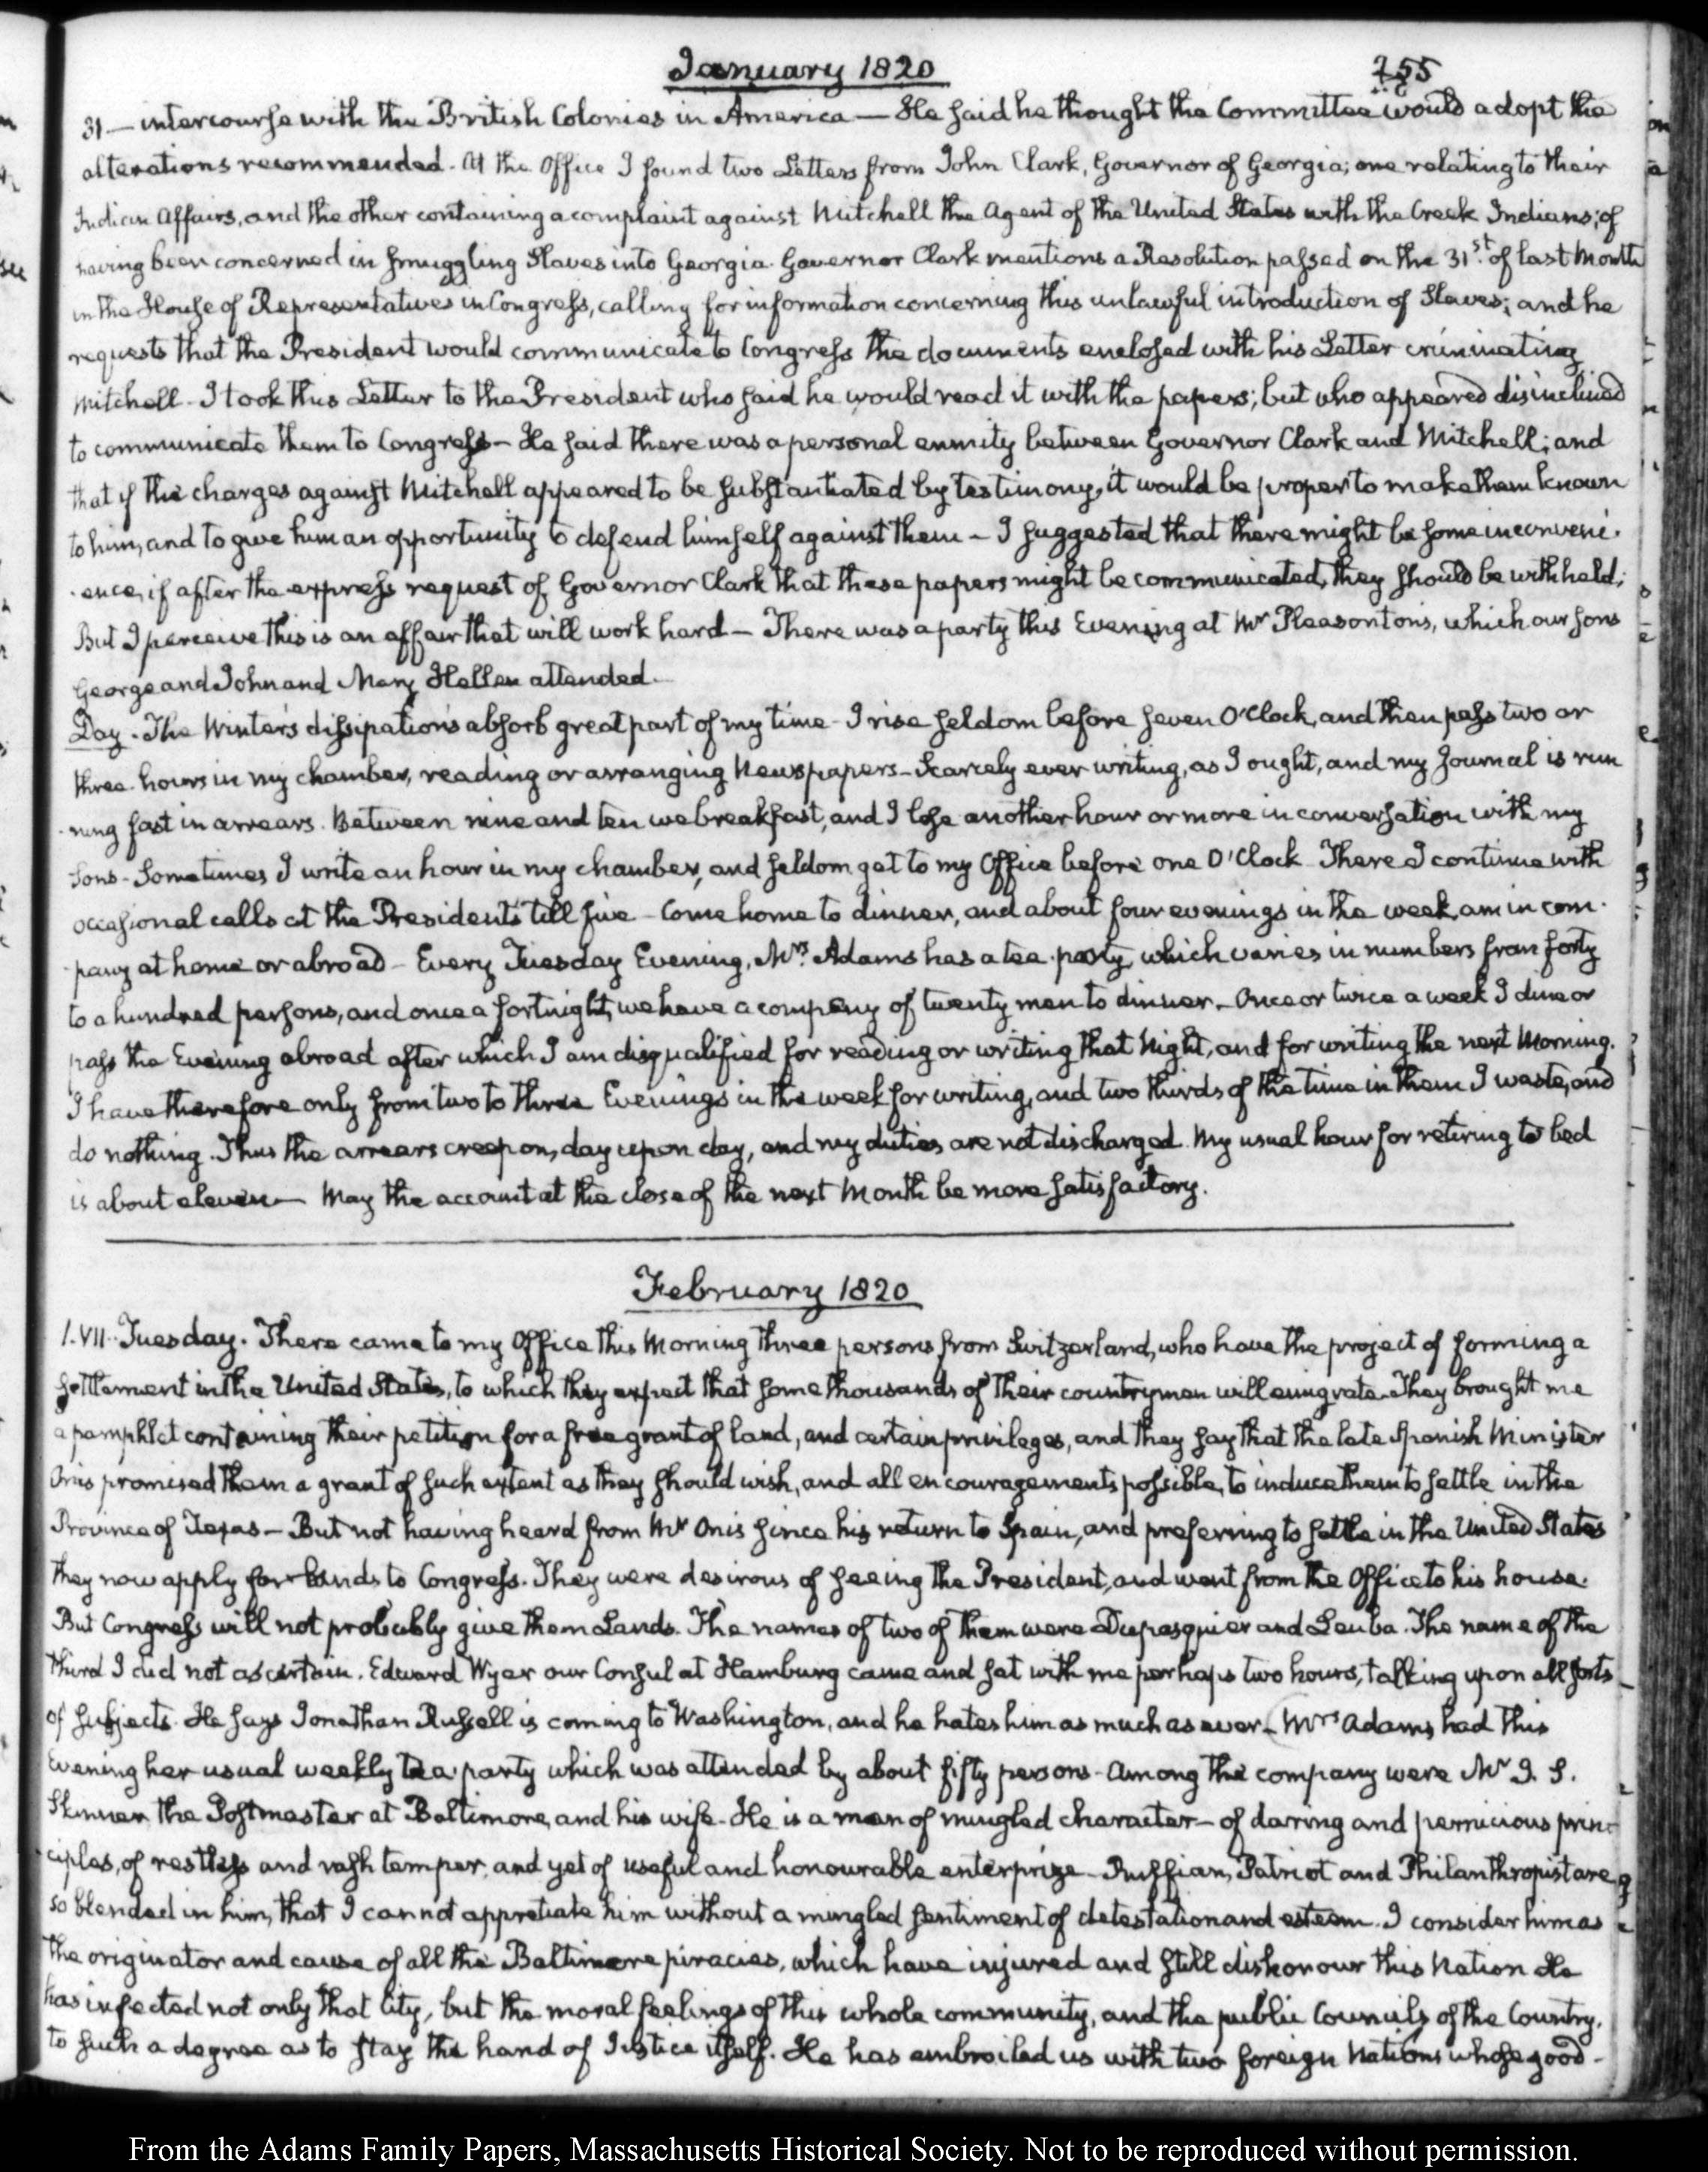 January 1820
255
31 — intercourse with the British Colonies in America — He said he thought the Committee would adopt the
alterations recommended. At the Office I found two Letters from John Clark, Governor of Georgia; one relating to their
Indian Affairs, and the other containing a complaint against Mitchell the Agent of the United States with the Creek Indians; of
having been concerned in smuggling Slaves into Georgia. Governor Clark mentions a Resolution passed on the 31st. of last Month
in the House of Representatives in Congress, calling for information concerning this unlawful introduction of Slaves; and he
requests that the President would communicate to Congress the documents enclosed with his Letter criminating
Mitchell - I took this Letter to the President who said he would read it with the papers; but who appeared disinclined
to communicate them to Congress - He said there was a personal enmity between Governor Clark and Mitchell; and
that if the charges against Mitchell appeared to be substantiated by testimony, it would be proper to make them known
to him, and to give him an opportunity to defend himself against them - I suggested that there might be some inconveni-
-ence, if after the express request of Governor Clark that these papers might be communicated, they should be withheld;
But I perceive this is an affair that will work hard — There was a party this Evening at Mr Pleasonton's, which our sons
George and John and Mary Hellen attended.
Day. The Winter's dissipations absorb great part of my time - I rise seldom before seven O'Clock, and then pass two or
three hours in my chamber, reading or arranging Newspapers - Scarcely ever writing, as I ought, and my Journal is run
-ning fast in arrears. Between nine and ten we breakfast, and I lose another hour or more in conversation with my
Sons - Sometimes I write an hour in my chamber, and seldom get to my Office before one O'Clock There I continue with
occasional calls at the President's till five - Come home to dinner, and about four evenings in the week, am in com-
-pany at home or abroad - Every Tuesday Evening, Mrs. Adams has a tea party, which varies in numbers from forty
to a hundred persons, and once a fortnight, we have a company of twenty men to dinner - Once or twice a week I dine or
pass the Evening abroad after which I am disqualified for reading or writing that Night, and for writing the next Morning.
I have therefore only from two to three Evenings in the week for writing, and two thirds of the time in them I waste, and
do nothing. Thus the arrears creep on, day upon day, and my duties are not discharged. My usual hour for retiring to bed
is about eleven — May the account at the close of the next Month be more satisfactory.
February 1820
1. VII. Tuesday. There came to my Office this Morning three persons from Switzerland, who have the project of forming a
settlement in the United States, to which they expect that some thousands of their countrymen will emigrate. They brought me
a pamphlet containing their petition for a free grant of land, and certain privileges, and they say that the late Spanish Minister
Onis promised them a grant of such extent as they should wish, and all encouragements possible, to induce them to settle in the
Province of Texas — But not having heard from Mr Onis since his return to Spain, and preferring to settle in the United States
they now apply for lands to Congress. They were desirous of seeing the President, and went from the Office to his house.
But Congress will not probably give them Lands. The names of two of them were Dupasquier and Leuba. The name of the
third I did not ascertain. Edward Wyer our Consul at Hamburg came and sat with me perhaps two hours, talking upon all sorts
of subjects. He says Jonathan Russell is coming to Washington, and he hates him as much as ever - Mrs Adams had this
Evening her usual weekly tea party which was attended by about fifty persons - Among the company were Mr J. S.
Skinner the Postmaster at Baltimore, and his wife - He is a man of mingled character - of daring and pernicious prin-
-ciples, of restless and rash temper, and yet of useful and honourable enterprize - Ruffian, Patriot and Philanthropist are
so blended in him, that I cannot appretiate him without a mingled sentiment of detestation and esteem. I consider him as
the originator and cause of all the Baltimore piracies, which have injured and still dishonour this Nation He
has infected not only that City, but the moral feelings of this whole community, and the public Councils of the Country,
to such a degree as to stay the hand of Justice itself. He has embroiled us with two foreign Nations whose good-
From the Adams Family Papers, Massachusetts Historical Society. Not to be reproduced without permission.